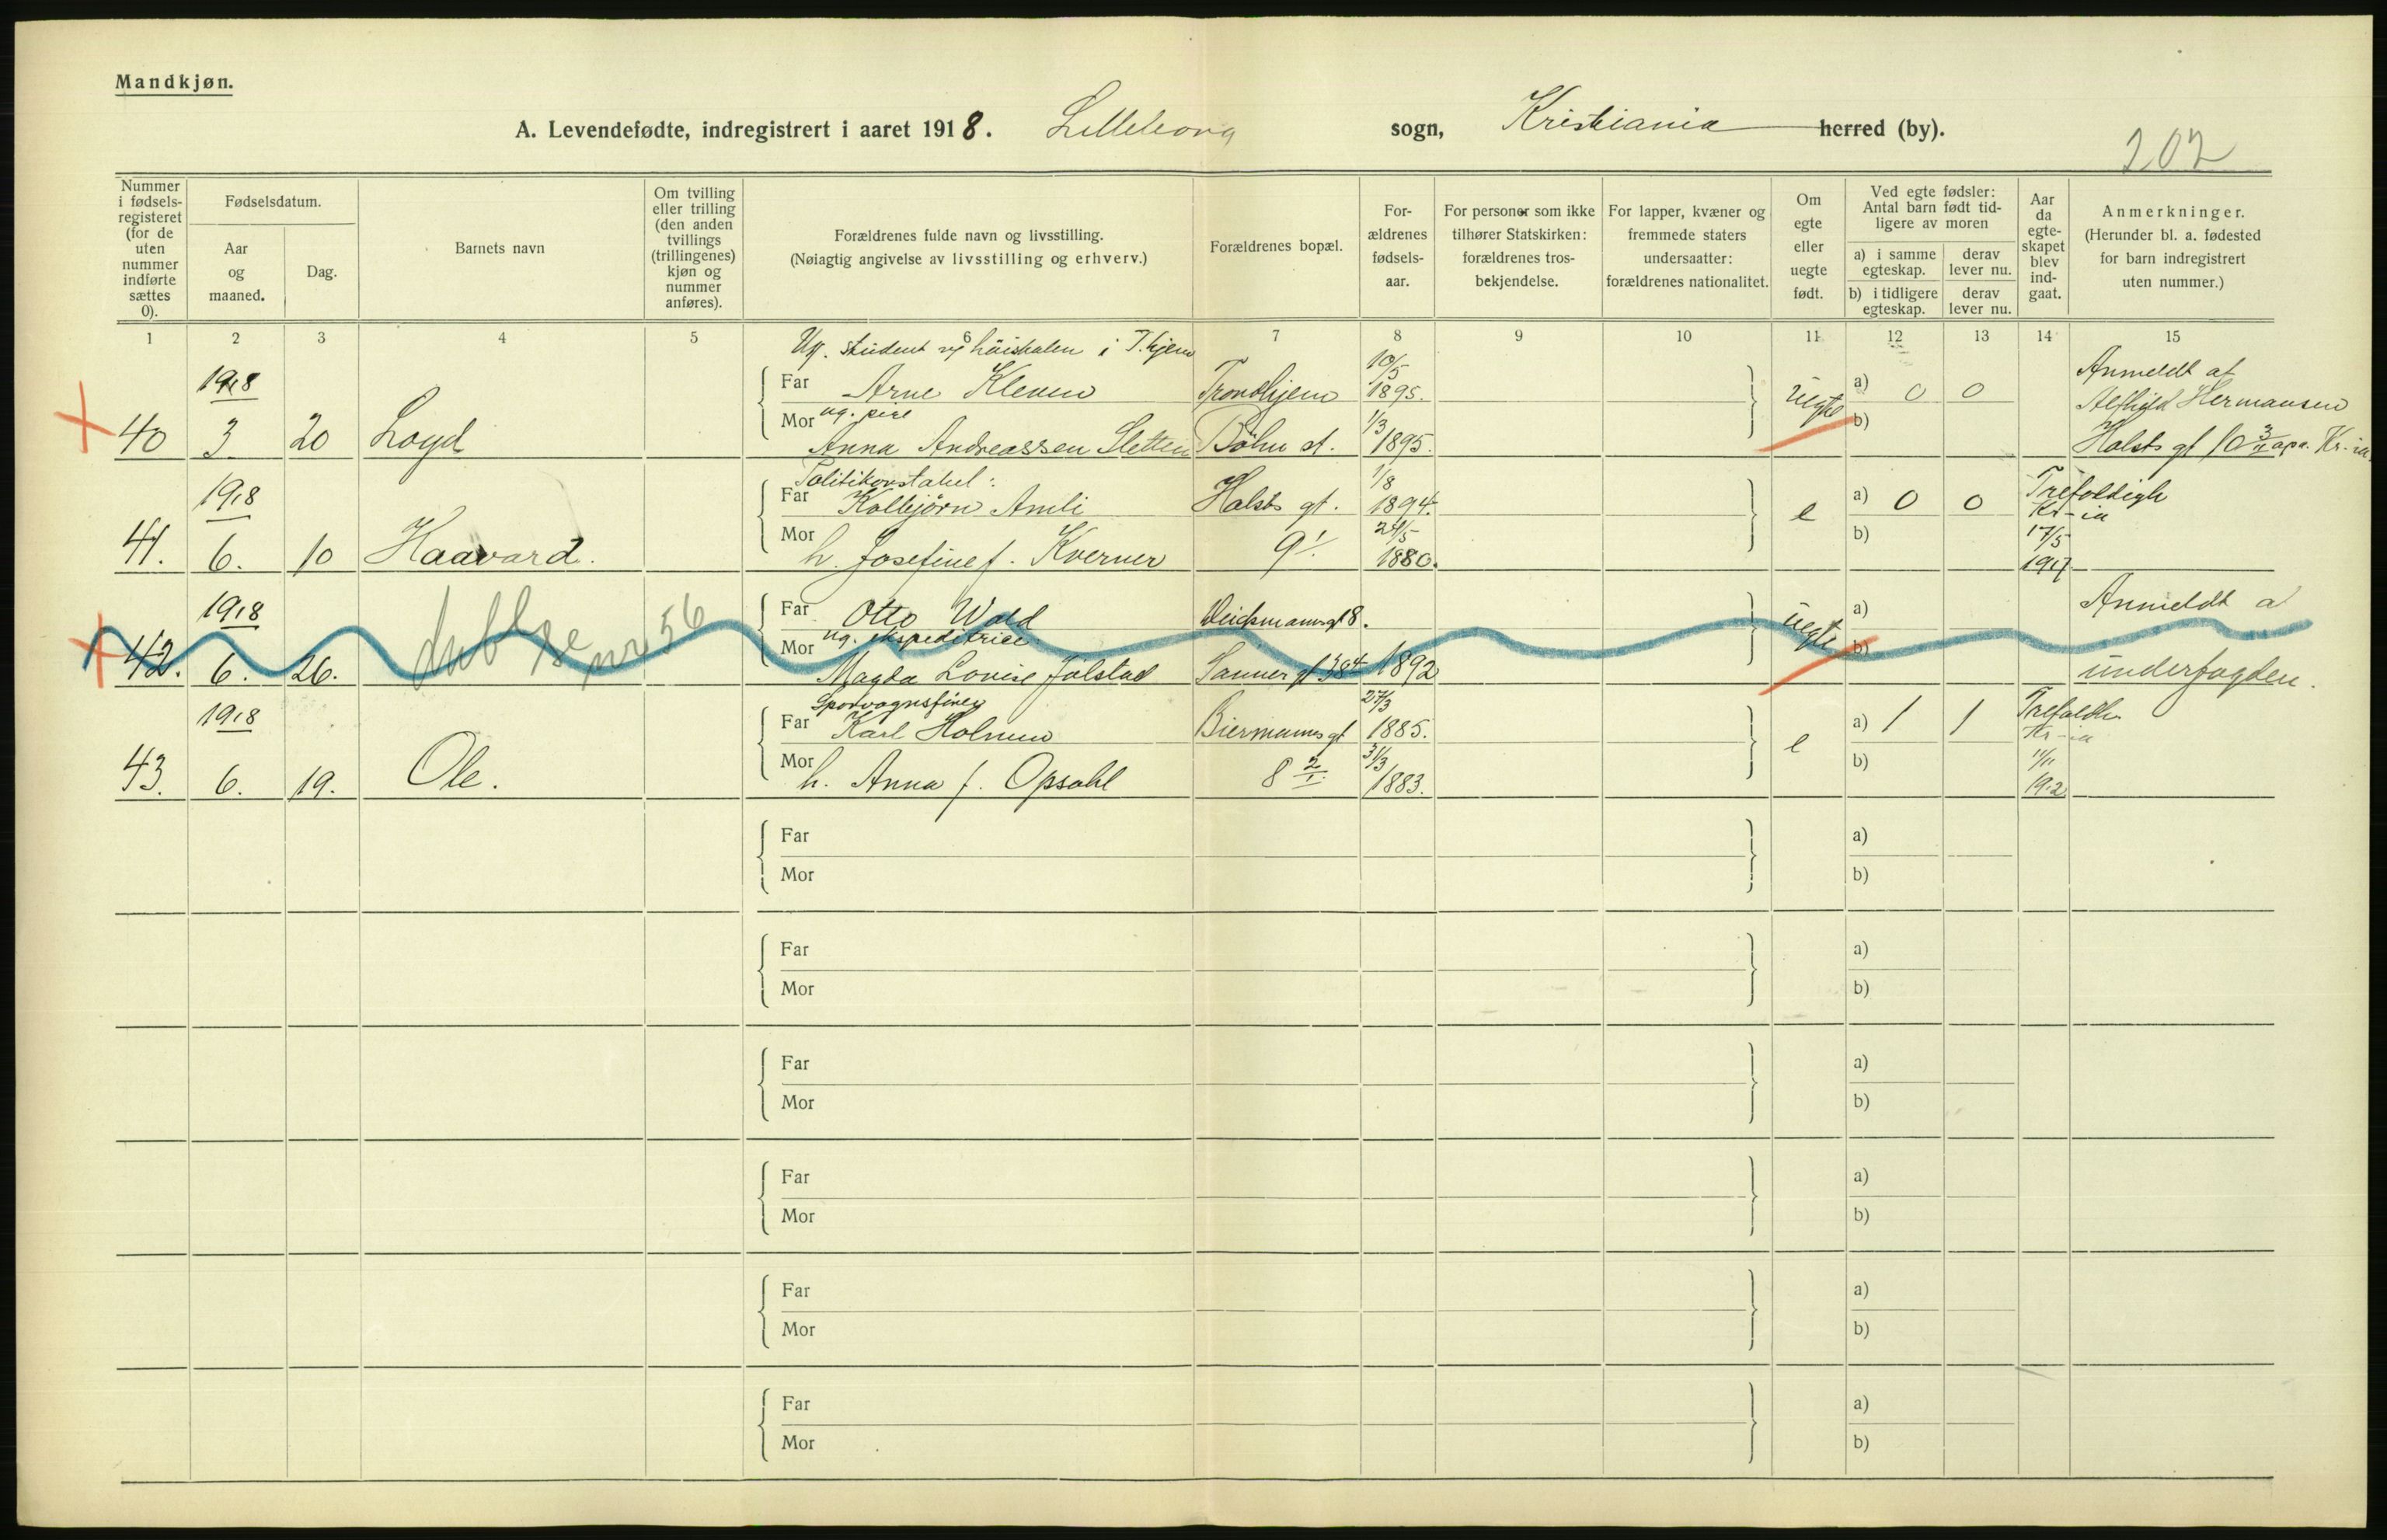 Mandkjøn.
A. Levendefødte, indregistrert i aaret 1918. Lilleborg sogn, Kristiania herred (by).
202
Nummer i fødsels-registeret (for de uten nummer indførte sættes 0).
Fødselsdatum.
Aar og maaned.
Dag.
Barnets navn
Om tvilling eller trilling (den anden tvillings (trillingenes) kjøn og nummer anføres).
Forældrenes fulde navn og livsstilling.
(Nøiagtig angivelse av livsstilling og erhverv.)
Forældrenes bopæl.
For-ældrenes fødsels-aar.
For personer som ikke tilhører Statskirken: forældrenes tros-bekjendelse.
For lapper, kvæner og fremmede staters undersaatter: forældrenes nationalitet.
Om egte eller uegte født.
Ved egte fødsler: Antal barn født tid-ligere av moren
a) i samme egteskap.
derav lever nu.
b) i tidligere egteskap.
derav lever nu.
Aar da egte-skapet blev ind-gaat.
Anmerkninger.
(Herunder bl. a. fødested for barn indregistrert uten nummer.)
1 2 3 4 5 6 7 8 9 10 11 12 13 14 15
Ug. student v/ höiskolen i T.hjem
1918 Far Arne Kleven Trondhjem 10/5 1895. uegte a) 0 0 Anmeldt af
Mor ug. pike b) Hermansen
40 3 20 Loyd Anna Andreassen Sletten Böhn st. 1/3 1895. Holsts gt 10 3/II opg. Kr-ia
Politikonstabel
1918 Far Kolbjörn Amli Holsts gt. 1/8 1894. e a) 0 0 Trefoldigh Kr-ia
Mor b)
41. 6. 10 Haavard. h. Josefine f. Kverner 9 I. 24/5 1880. 17/5 1917.
1918 Far Otto Wold Deichmannsgt 8. uegte a) Anmeldt a
dublse nr 56
Mor ug. ekspeditrice b)
42. 6. 26. Magda Lovise Jølstad Sanner gt 1892 underfogden.
Sporvognsfører
1918 Far Karl Holmen Biermanns gt 27/3 1885. e a) 1 1 Trefoldh. Kr-ia
Mor b)
43. 6. 19. Ole. h. Anna f. Opsahl 8 2/I. 31/3 1883. 11/11 1912
Far a)
Mor b)
Far a)
Mor b)
Far a)
Mor b)
Far a)
Mor b)
Far a)
Mor b)
Far a)
Mor b)